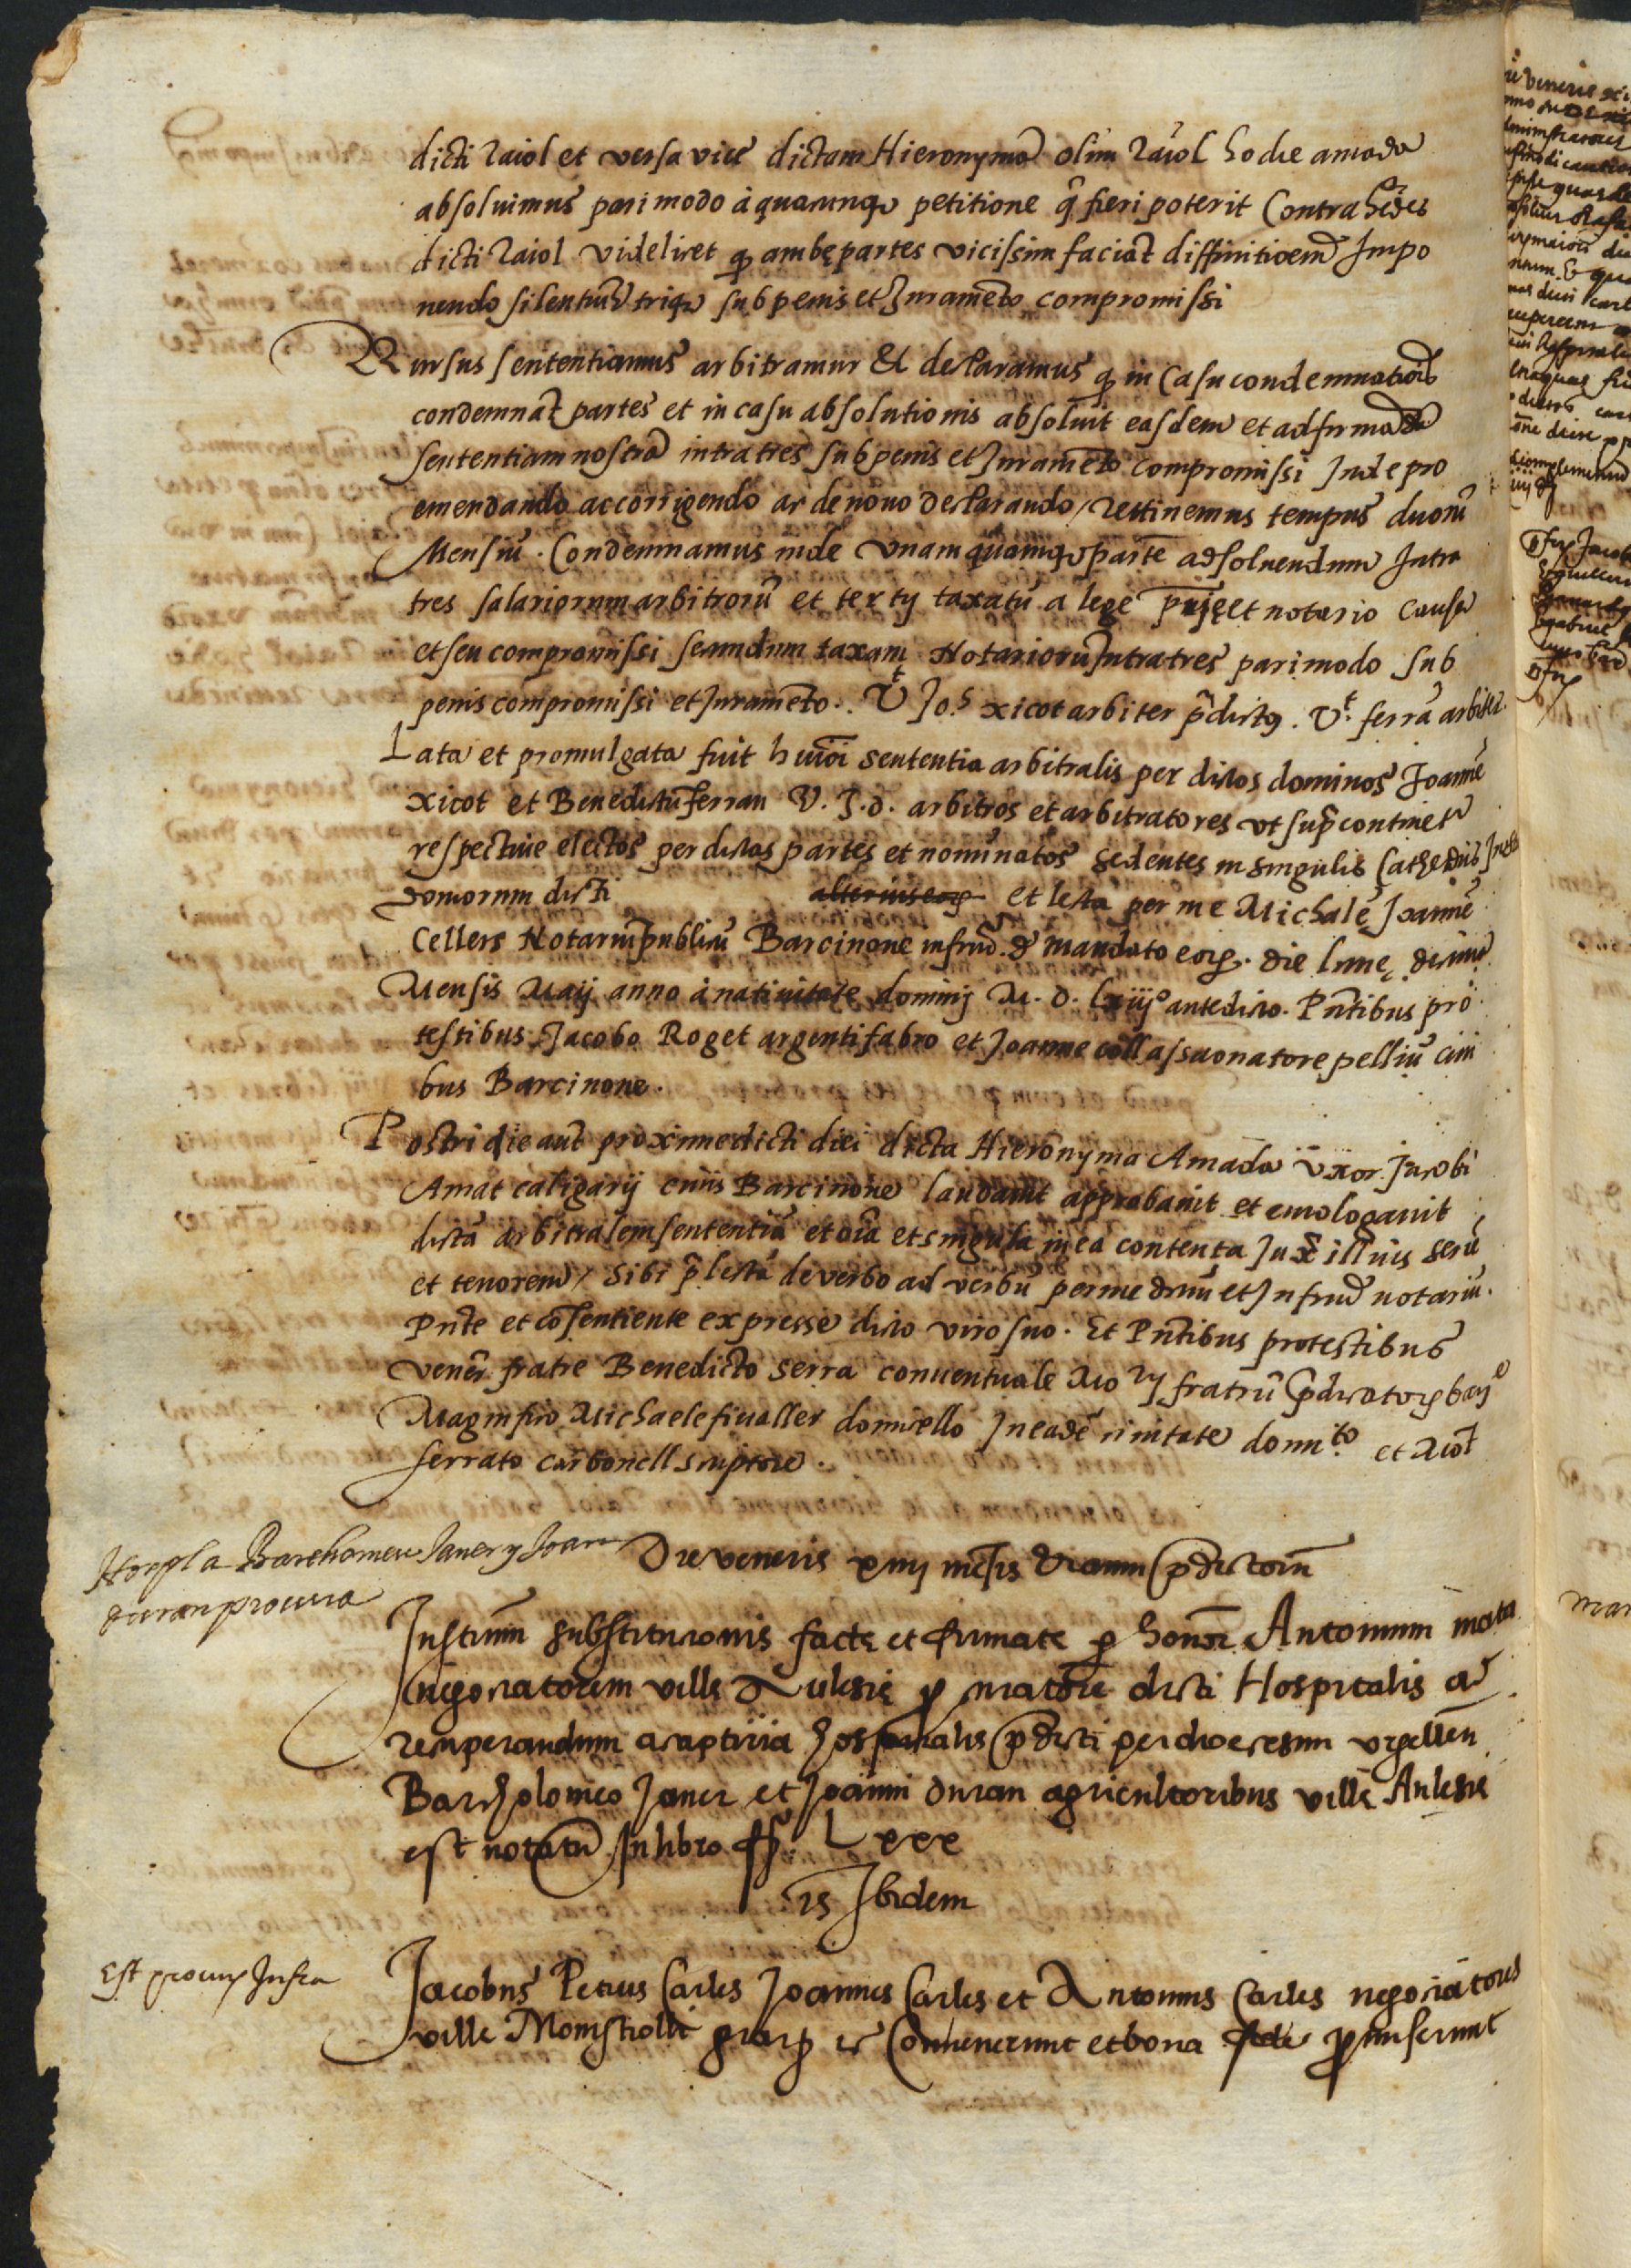 dicti Raiol et versa vice dictam Hieronymã olim Raiol hodie amada
absoluimus pari modo à quacunqȝ petitione q̃ fieri poterit Contra hẽdes
dicti Raiol videlicet qȝ ambę partes vicissim faciãt diffinitioem̃ Impo
nendo silentiũ utriqȝ sub penis et Juramẽto compromissi
Rursus sententiamus arbitramur & declaramus qȝ in Casu condemnatiõis
condemnãt partes et in casu absolutionis absoluit easdem et ad firmãdã
sententiam nostrã intra tres sub penis et Juramẽto compromissi Inde pro
emendando accorrigendo ac de nouo declarando / rettinemus tempus duorũ
Mensiũ. Condemnamus inde vnamquamqȝ partẽ ad soluendum Intra
tres salariorum arbitrorũ et tertij taxatũ a lege et notario Causę
et seu compromissi secundum taxam Notariorũ Intra tres pari modo sub
penis compromissi et Juramẽto. Vt Jo.s xicot arbiter p̃dictꝯ. Vt ferrã arbiter
Lata et promulgata fuit hmõi sententia arbitralis per dictos dominos Joannẽ
xicot et Benedictũ ferran V. J. d. arbitros et arbitratores vt sup̃ continetr
respectiue electos per dictas partes et nominatos sedentes in singulis Cathedris
domorum dicti alterius eorꝝ et lecta per me Michaelẽ Joannẽ
Cellers Notariũ publicũ Barcinone infrũ. de mandato eorꝝ. die lunę decima
Mensis Maij anno à natiuitate dominj M. d. lxiijº antedicto. Pñtibus pro
testibus Jacobo Roget argentifabro et Joanne coll assaonatore pelliũ ciui
bus Barcinone.
Postridie aut̃ proxime dicti diei dicta Hieronyma Amada vxor Jacobi
Amat caligarij ciuis Barcinone laudauit approbauit et emologauit
dictã arbitralem sententiã et oĩa et singula in ea contenta Juxª illius seriẽ
et tenorem / sibi p̃lectã de verbo ad verbũ per me dictũ et Infrũ notariũ.
Pñte et cõsentiente expresse dicto viro suo. Et Pñtibus pro testibus
vener. fratre Benedicto serra conuentuale Mo rij fratrũ p̃dicatorꝝ
Magnifico Michaele fiualler domicello In eadẽ ciuitate domi.to et Mõt
serrato carbonell scriptore.
Hospl a Barthomeu Janer y Joan
duran procura
Die veneris xiiij mẽsis Et anni p̃dictorũ
Instrum̃ substitucionis factę et firmatę ꝑ honor. Antonium mata
negociatorem villę Aulesię ꝓcuratorẽ dicti Hospitalis ad
recuperandum acaptiria hospitalis p̃dicti per diocęsim vrgellen̄
Bartholomeo Janer et Joanni duran agricultoribus villę Aulesię
est notatũ In libro ff. Lxxx
is Ibidem
Est procurꝰ Infra
Jacobus Petrus Carles Joannes Carles et Antonius Carles negociatores
ville Monistrolli gratis et Conuenerunt et bona fide ꝓmiserunt